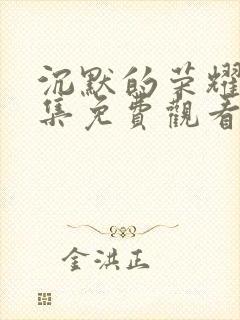 沉默的荣耀
集免費觀看
金洪正